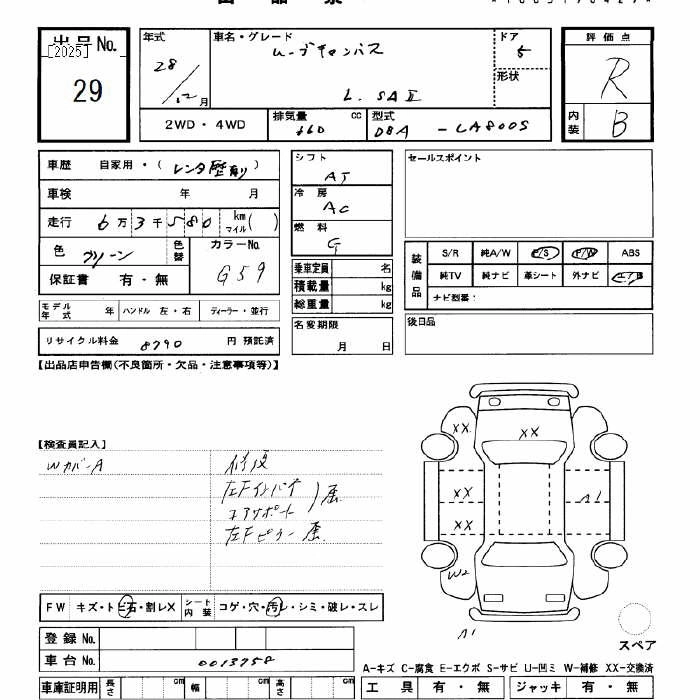 出品No.
[2025]
29
年式
28/12月
車名・グレード
ムーブキャンバス
L. SAⅡ
ドア
5
形状
評価点
R
内装
B
2WD・4WD
排気量 660 cc
型式 DBA - LA800S
車歴 自家用・(レンタ歴有り)
車検 年 月
走行 6万3千580 km マイル( )
色 グリーン
色替
カラーNo.
G59
保証書 有・無
モデル年式 年 ハンドル 左・右 ディーラー・並行
リサイクル料金 8790 円 預託済
シフト
AT
冷房
AC
燃料
G
乗車定員 名
積載量 kg
総重量 kg
名変期限
月 日
セールスポイント
装備品
S/R 純A/W P/S P/W ABS
純TV 純ナビ 革シート 外ナビ ETC
ナビ型番:
後日品
【出品店申告欄(不良箇所・欠品・注意事項等)】
【検査員記入】
Wカバー A
修復
左Fインパネ
コアサポート 屈
左Fピラー 屈
FW キズ・トビ石・割レX シート内装 コゲ・穴・汚レ・シミ・破レ・スレ
XX
XX
XX
XX
A1
W2
A1
スペア
登録No.
車台No. 0013758
A-キズ C-腐食 E-エクボ S-サビ U-凹ミ W-補修 XX-交換済
車庫証明用 長さ cm 幅 cm 高さ cm
工具 有・無 ジャッキ 有・無